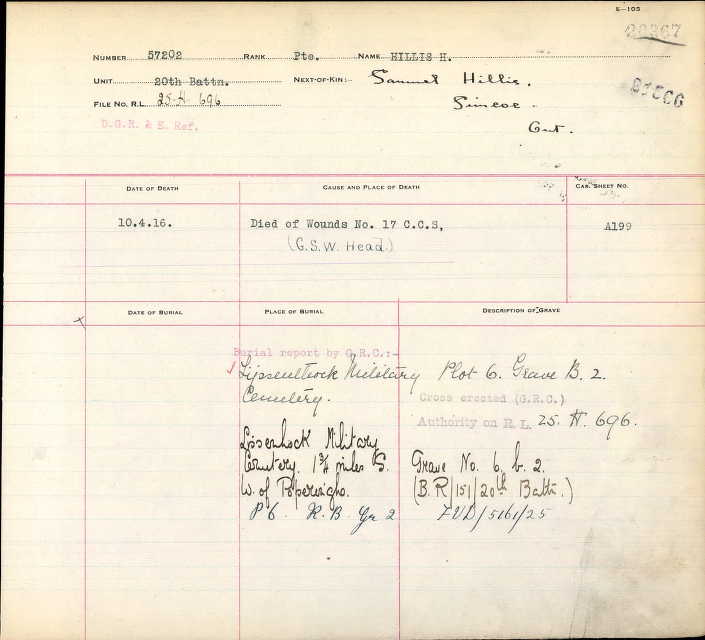 E-105
NUMBER 57202 RANK Pte. NAME HILLIS H.
UNIT 20th Battn. NEXT-OF-KIN:- Samuel Hillis.
FILE NO. R.L. 25-H-696 Simcoe.
D.G.R. & E. Ref. Ont.
DATE OF DEATH CAUSE AND PLACE OF DEATH CAS. SHEET NO.
10.4.16. Died of Wounds No. 17 C.C.S, A199
(G.S.W. Head.)
DATE OF BURIAL PLACE OF BURIAL DESCRIPTION OF GRAVE
Burial report by G.R.C.:-
Lijssenthoek Military Plot 6. Grave B. 2.
Cemetery. Cross erected (G.R.C.)
Authority on R.L. 25. H. 696.
Lissenhoek Military
Cemetery. 1¾ miles S. Grave No. 6, b. 2.
W. of Poperinghe. (B.R/151/20th Battn.)
P 6. R.B. Gr 2 /5161/25